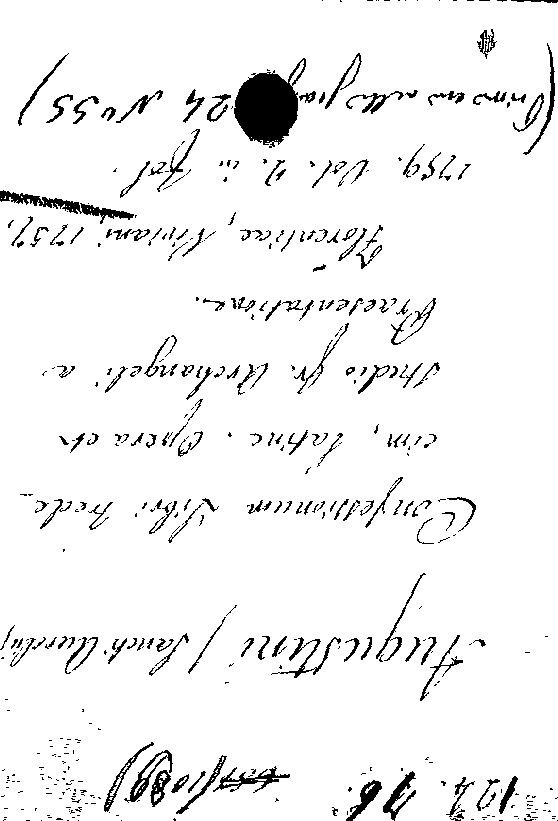 122. 16. (1089)
Augustini (Sancti Aurelii)
Confessionum Libri trede_
cim, latine. Opera et
studio fr. Archangeli a
Praesentatione.
Florentiae, Viviani, 1757,
1759. Vol. 2. in fol.
24 Nº 55)